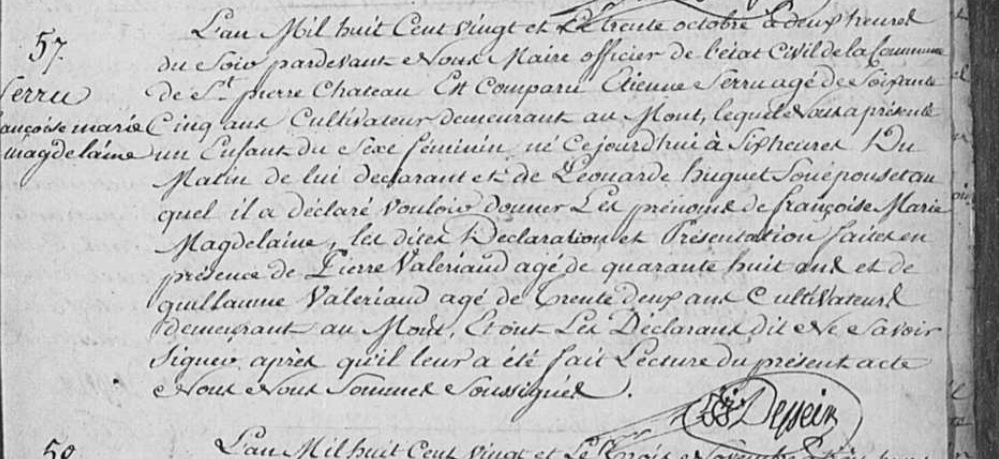 57.
Serru
françoise marie
magdelaine
L'an Mil huit Cent vingt et Le trente octobre à deux heures
du Soir pardevant Nous Maire officier de l'état Civil de la Commune
de St. pierre Chateau Est Comparu Etienne Serru agé de Soixante
Cinq ans Cultivateur demeurant au Mont, lequel Nous a présenté
un Enfant du Sexe féminin né Cejourd'hui à Six heures Du
Matin de lui declarant et de Léonarde huguet Son épouse et au
quel il a déclaré vouloir donner Les prénoms de françoise Marie
Magdelaine, les dites Declaration et Présentation faites en
présence de Pierre Valeriaud agé de quarante huit ans et de
guillaume Valeriaud agé de trente deux ans Cultivateurs
demeurant au Mont, Et ont Les Déclarans dit Ne Savoir
Signer après qu'il leur a été fait Lecture du présent acte
Nous Nous Sommes Soussignés.
Dessein
58
L'an Mil huit Cent vingt et Le Trois Novembre